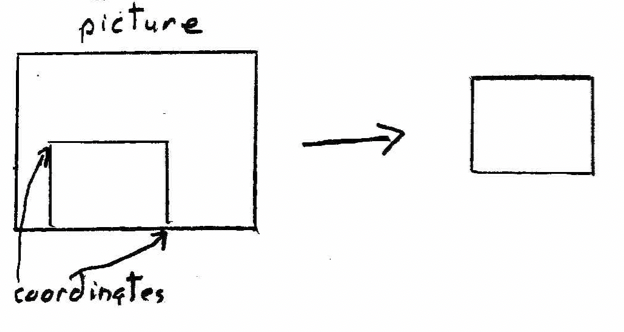 picture
coordinates